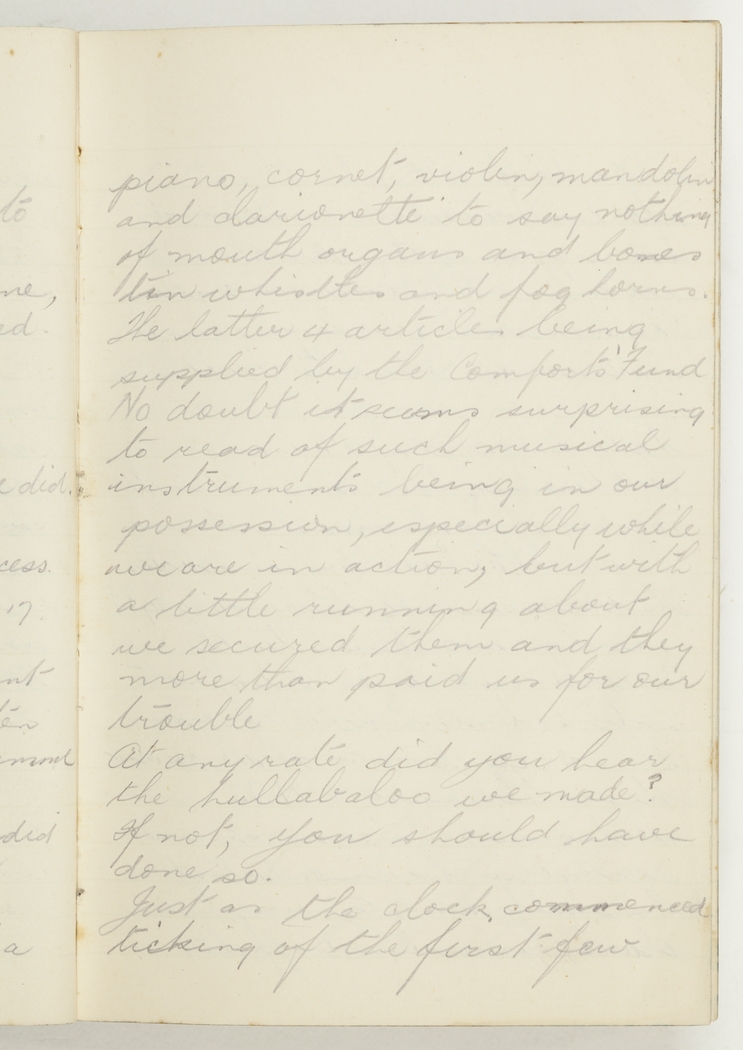 piano, cornet, violin, mandolin
and clarionette to say nothing
of mouth organs and bones
tin whistles and fog horns.
The latter 4 articles being
supplied by the Comforts' Fund
No doubt it seems surprising
to read of such musical
instruments being in our
possession, especially while
we are in action, but with
a little running about
we secured them and they
more than paid us for our
trouble
At any rate did you hear
the hullabaloo we made?
If not, you should have
done so.
Just as the clock commenced
ticking of the first few
to
me,
ed.
e did.
cess.
17.
nt
en
did
a